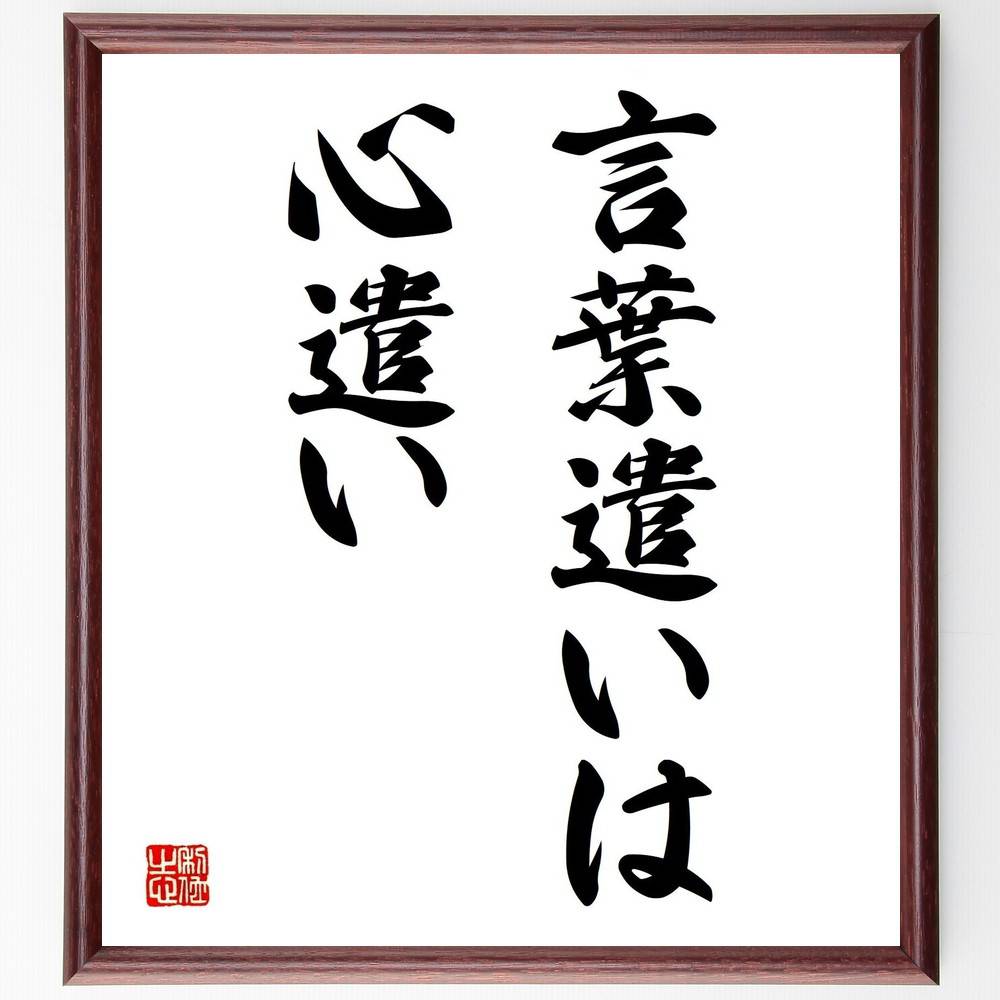 言葉遣いは
心遣い